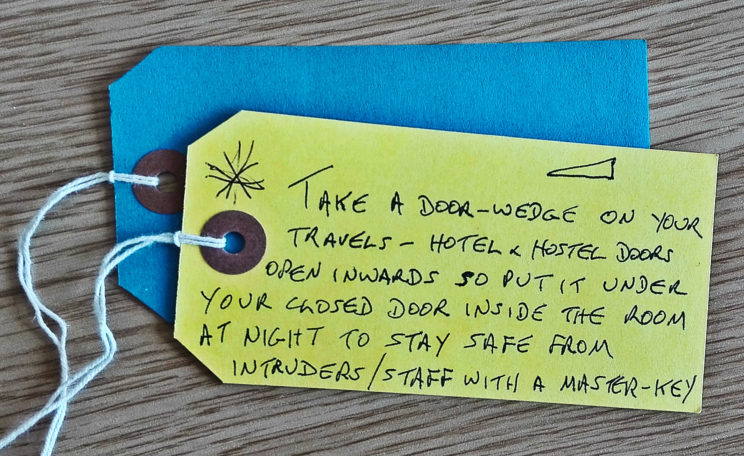 TAKE A DOOR-WEDGE ON YOUR
TRAVELS - HOTEL & HOSTEL DOORS
OPEN INWARDS SO PUT IT UNDER
YOUR CLOSED DOOR INSIDE THE ROOM
AT NIGHT TO STAY SAFE FROM
INTRUDERS/STAFF WITH A MASTER-KEY